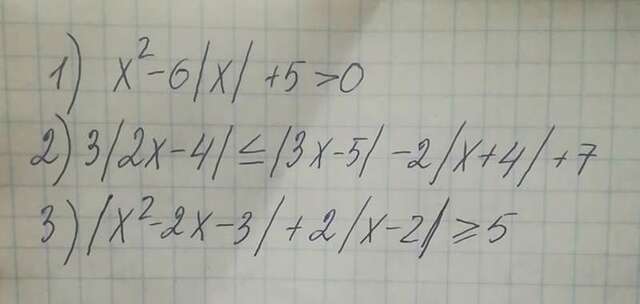 1) x²-6|x|+5>0
2) 3|2x-4|≤|3x-5|-2|x+4|+7
3) |x²-2x-3|+2|x-2|≥5